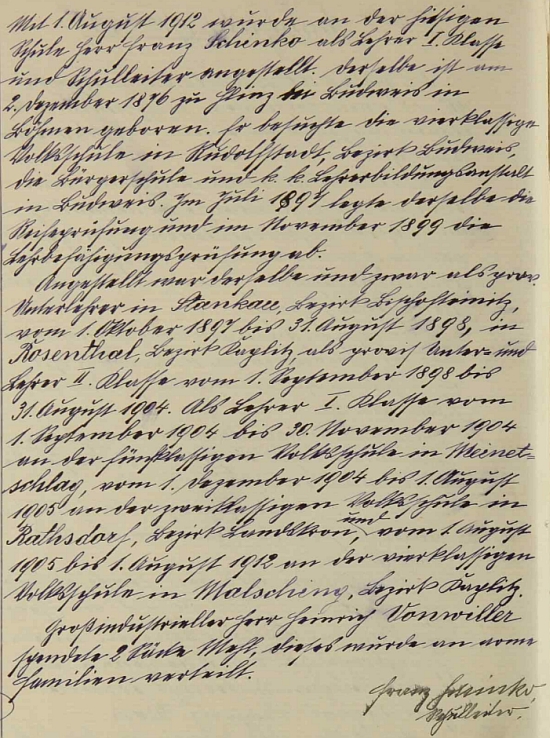 Mit 1. August 1912 wurde an der hiesigen
Schule Herr Franz Schinko als Lehrer I. Klasse
und Schulleiter angestellt. Derselbe ist am
2. Dezember 1876 zu bei Budweis in
Böhmen geboren. Er besuchte die vierklassige
Volksschule in Rudolfstadt, Bezirk Budweis,
die Bürgerschule und k. k. Lehrerbildungsanstalt
in Budweis. Im Juli 1897 legte derselbe die
Reifeprüfung und im November 1899 die
Lehrbefähigungsprüfung ab.
Angestellt war derselbe und zwar als prov.
Unterlehrer in Stankau, Bezirk Bischofteinitz,
vom 1. Oktober 1897 bis 31. August 1898, in
Rosenthal, Bezirk Kaplitz als provis. Unter- und
Lehrer II. Klasse vom 1. September 1898 bis
31. August 1904. Als Lehrer I. Klasse vom
1. September 1904 bis 30. November 1904
an der fünfklassigen Volksschule in Meinet-
schlag, vom 1. Dezember 1904 bis 1. August
1905 an der zweiklassigen Volksschule in
Rathsdorf, Bezirk Landskron, und vom 1. August
1905 bis 1. August 1912 an der vierklassigen
Volksschule in Malsching, Bezirk Kaplitz.
Großindustrieller Herr Heinrich Vonwiller
spendete 2 Säcke Mehl, dieses wurde an arme
Familien verteilt.
Franz Schinko,
Schulleiter.